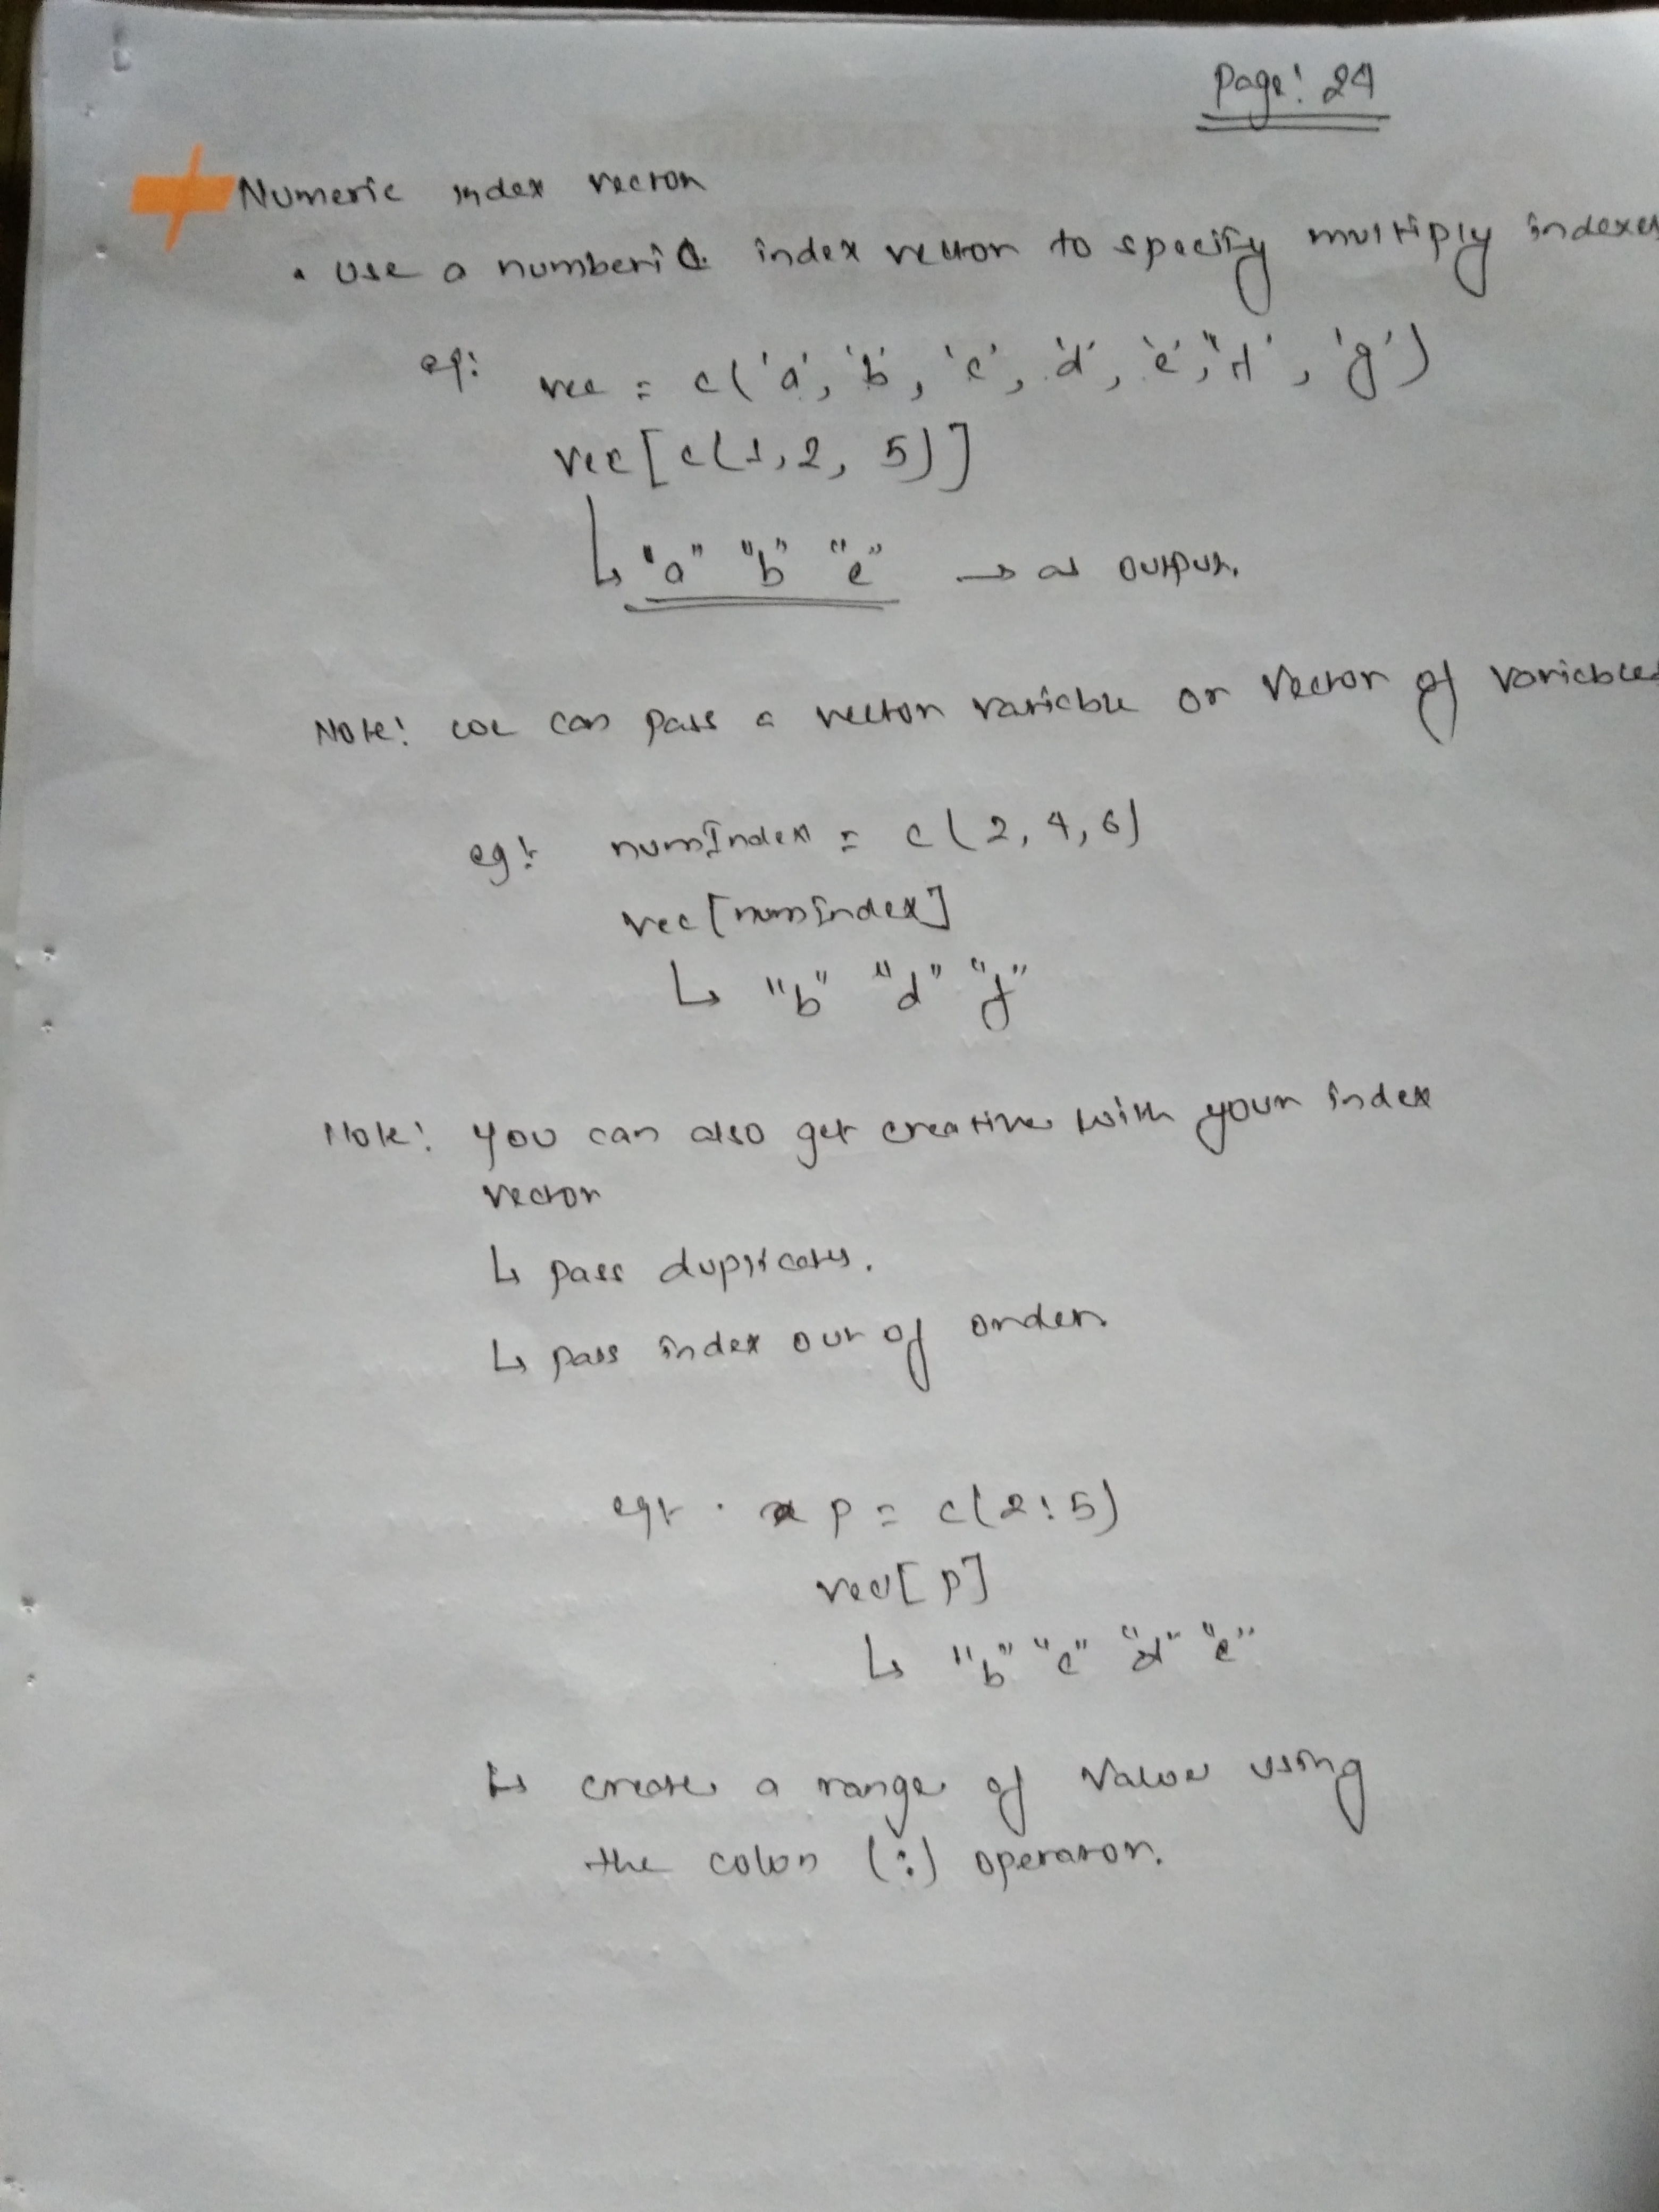 Page: 24
Numeric index vector
• use a numberic index vector to specify multiply indexes
eg: vec = c('a', 'b', 'c', 'd', 'e', 'f', 'g')
vec[c(1,2, 5)]
↳ "a" "b" "e" → as output.
Note: we can pass a vector variable or vector of variables
eg: numIndex = c(2, 4, 6)
vec[numIndex]
↳ "b" "d" "f"
Note: you can also get creative with your index
vector
↳ pass duplicates.
↳ pass index out of order.
eg: • p = c(2:5)
vec[p]
↳ "b" "c" "d" "e"
↳ create a range of value using
the colon (:) operator.